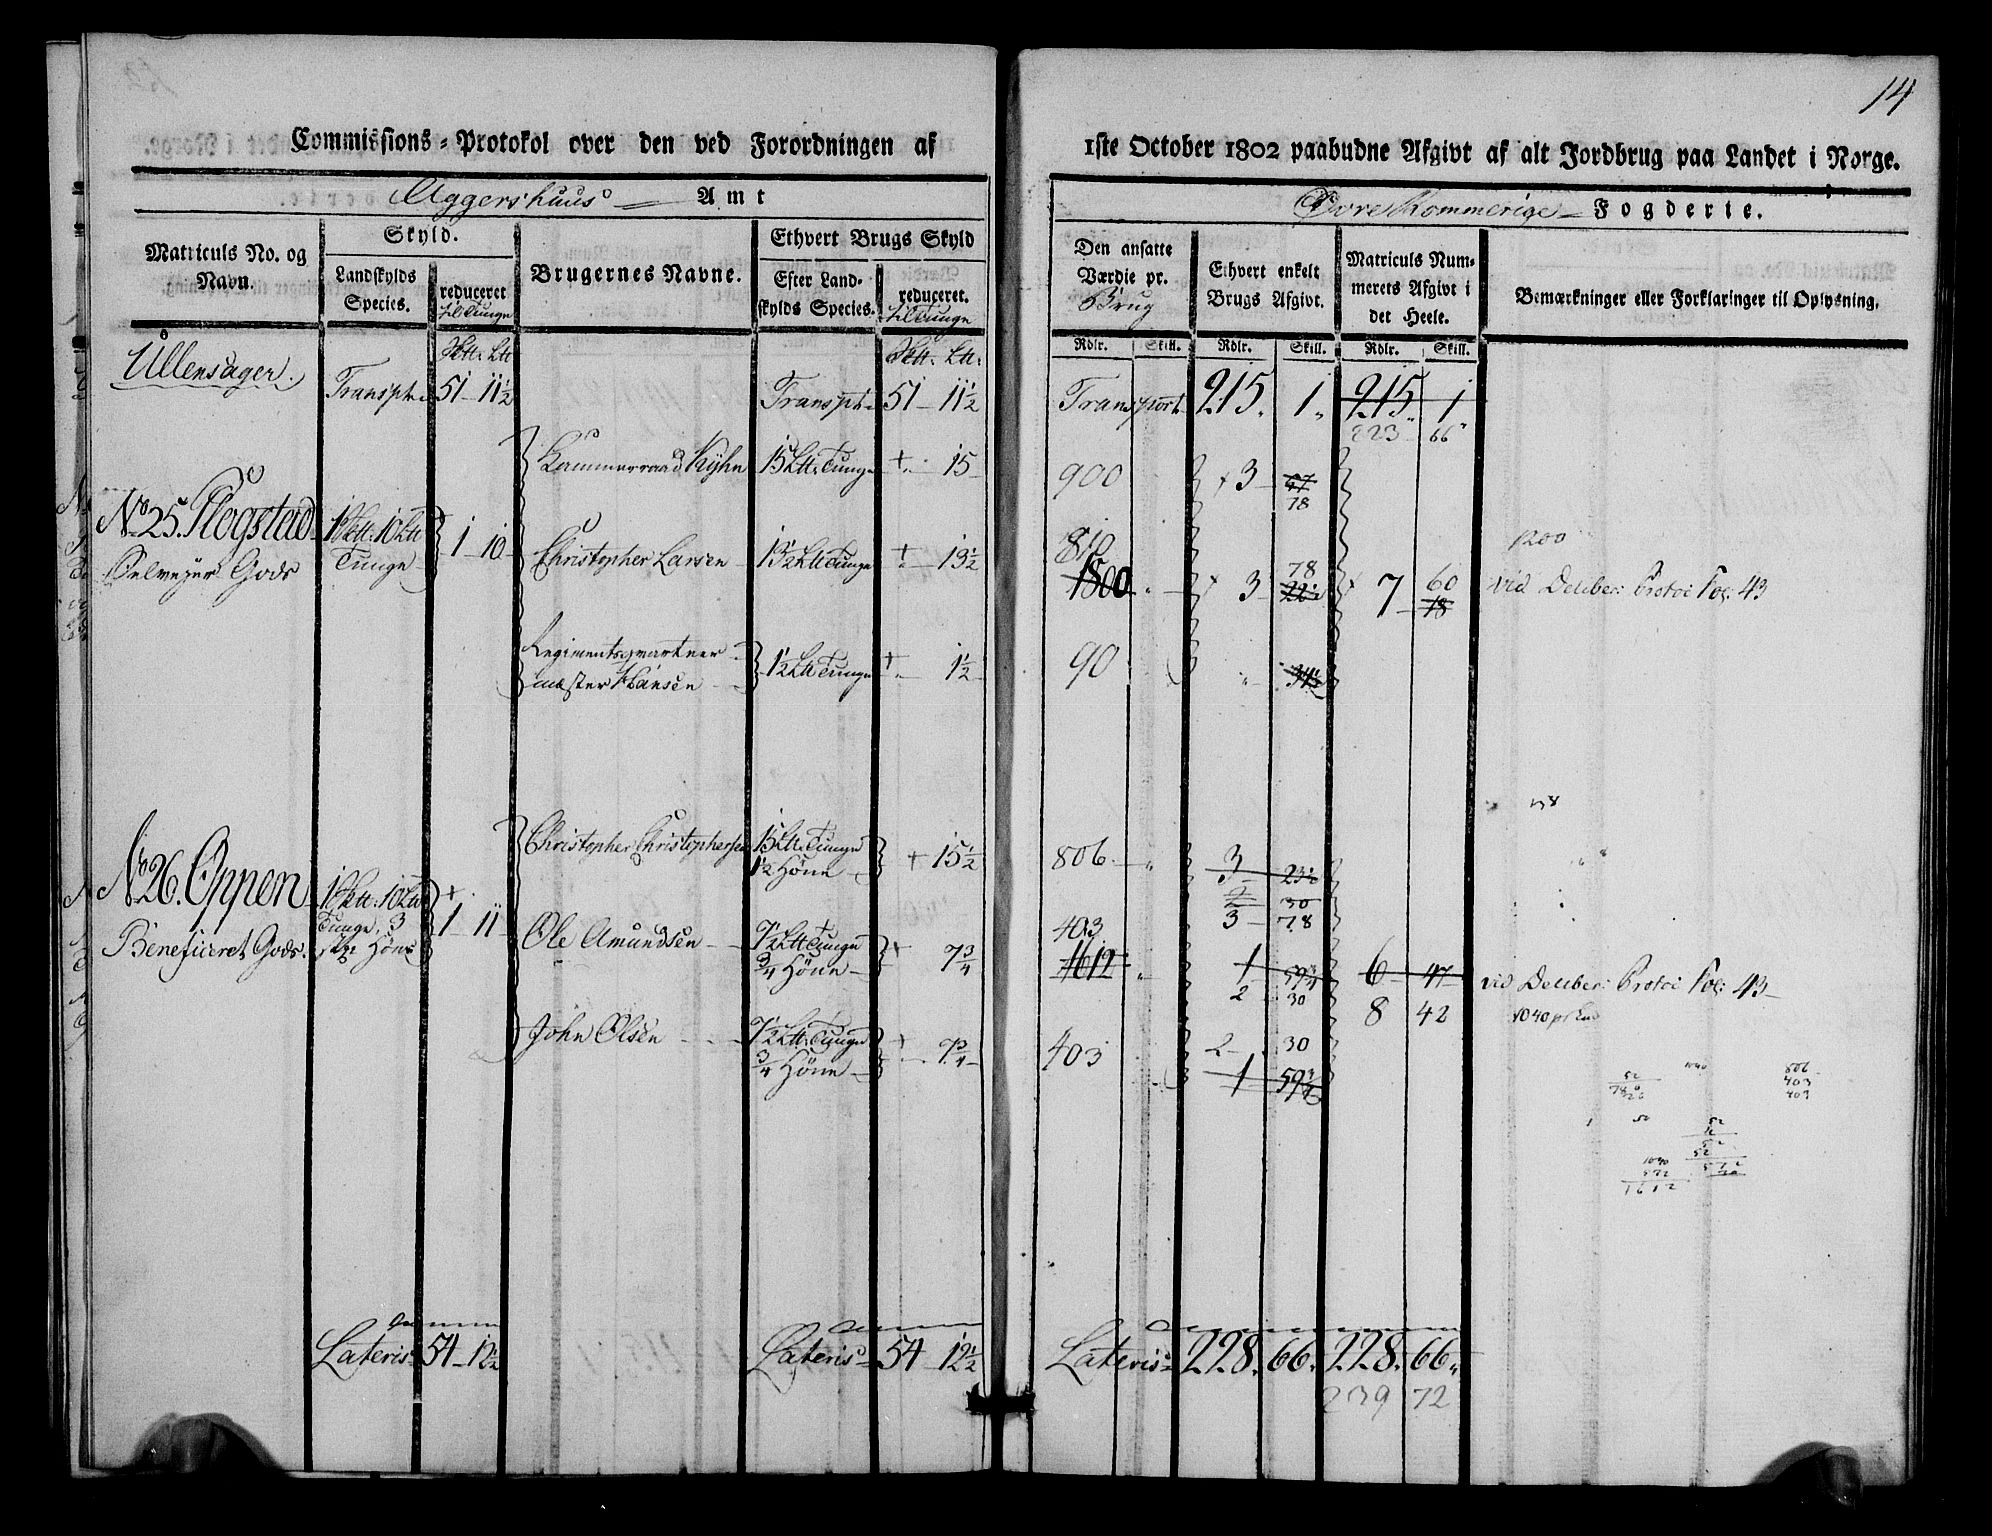 14
Commissions-Protokol over den ved Forordningen af
Aggershuus Amt
Matriculs No. og Navn.
Skyld.
Landskylds Species.
reduceret til Tunge
Brugernes Navne.
Ethvert Brugs Skyld
Efter Landskylds Species.
reduceret. til Tunge
Ullensager.
Transpt. 51 - 11½
Transpt. 51 - 11½
No 25. Flogstad
Selvejer Gods
1 Sktt: 10 Ltt
Tunge
1 - 10
Kammerraad Kyhn 15 Ltt. Tunge 15
Christopher Larsen 13½ Ltt Tunge 13½
Regimentsqvarteer
mester Hansen 1½ Ltt Tunge 1½
No 26. Oppen
Beneficeret Gods.
1 Sktt: 10 Ltt
Tunge, 3
Høne
1 - 11
Christopher Christophersen 15 Ltt. Tunge
1½ Høne + 15½
Ole Amundsen 7½ Ltt Tunge
¾ Høne 7¾
John Olsen 7½ Ltt. Tunge
¾ Høne 7¾
Lateris 54 - 12½
Lateris 54 12½
1ste October 1802 paabudne Afgivt af alt Jordbrug paa Landet i Norge.
Øvre Rommerige Fogderie.
Den ansatte Værdie pr. Brug
Ethvert enkelt Brugs Afgivt.
Matriculs Nummerets Afgivt i det Heele.
Bemærkninger eller Forklaringer til Oplysning.
Rdlr. Skill. Rdlr. Skill. Rdlr. Skill.
Transport 215 1 215 1
223 66
900 3 67
78
1200
810 78 60
1800 3 22½ 7 18 vid Deliber: Protoc Fol: 43
90 34½
806 3 23½
2 30
3 78
403
1612 1 59¾ 6 47 vid Deliber: Protoc Fol: 43
2 30 8 42 1040
403 2 30
1 59¾
1040 806
52 403
403
52
52
1040 52
572 572
1612
Lateris 228 66 228 66
239 72